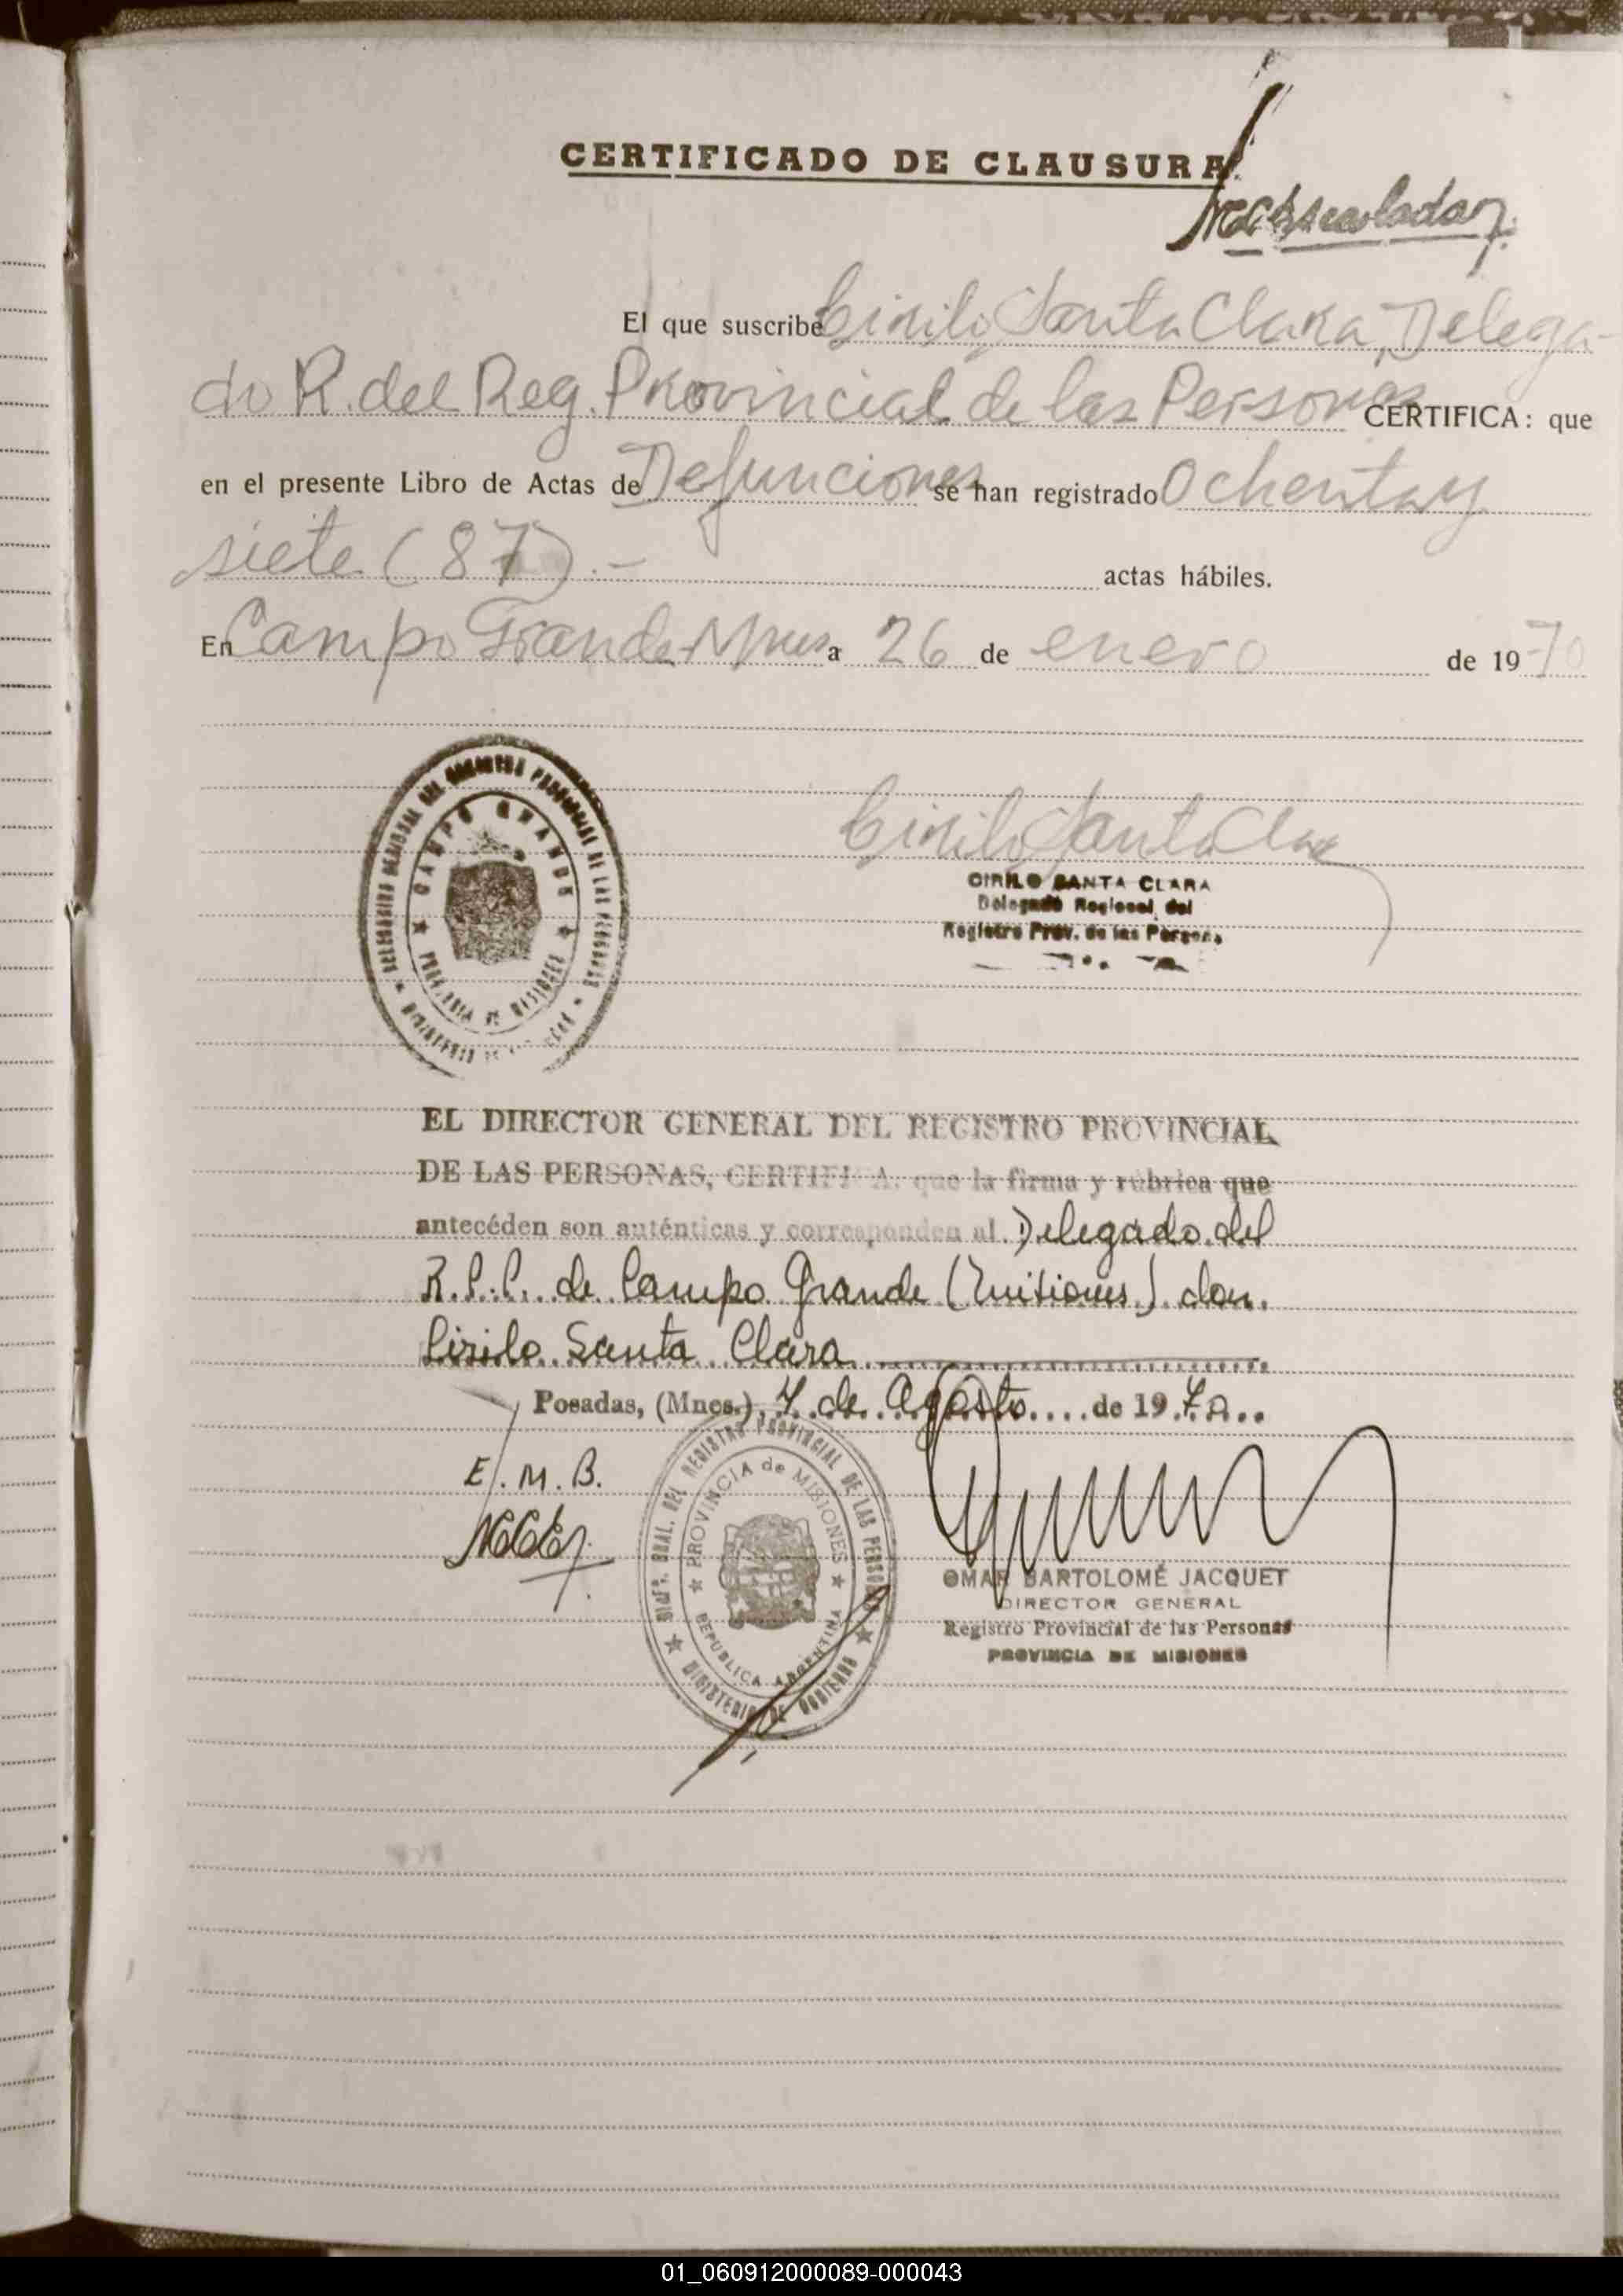 CERTIFICADO DE CLAUSURA
El que suscribe Cirilo Santa Clara, Delega-
do R. del Reg. Provincial de las Personas CERTIFICA: que
en el presente Libro de Actas de Defunciones se han registrado Ochenta y
siete (87).- actas hábiles.
En Campo Grande Mnes a 26 de enero de 1970
CAMPO GRANDE
PROVINCIA DE MISIONES
Cirilo Santa Clara
CIRILO SANTA CLARA
Delegado Regional del
Registro Prov. de las Personas
EL DIRECTOR GENERAL DEL REGISTRO PROVINCIAL
DE LAS PERSONAS, CERTIFICA: que la firma y rúbrica que
antecéden son auténticas y corresponden al Delegado del
R.P.P. de Campo Grande (Misiones) don
Cirilo Santa Clara
Posadas, (Mnes.), 7 de Agosto de 1970
E.M.B.
DIR. GRAL. DEL REGISTRO PROVINCIAL DE LAS PERSONAS
PROVINCIA de MISIONES
REPUBLICA ARGENTINA
MINISTERIO DE GOBIERNO
OMAR BARTOLOMÉ JACQUET
DIRECTOR GENERAL
Registro Provincial de las Personas
PROVINCIA DE MISIONES
01_060912000089-000043